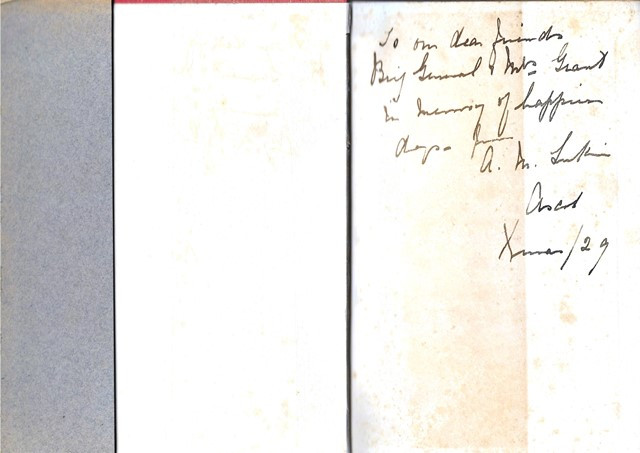 To our dear friends
Brig General & Mrs Grant
in memory of happier
days from
A. M. Lukin
Ascot
Xmas/29